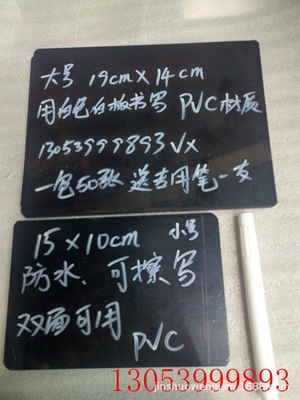 大号 19cm×14cm
用白色白板书写 PVC材质
13053999893 VX
一包50张 送专用笔一支
15×10cm 小号
防水、可擦写
双面可用
PVC
13053999893
jinshuowenju.cn.1688.com